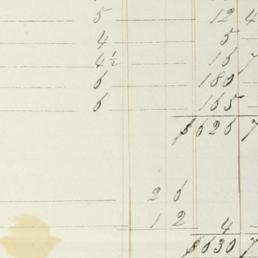 5 12 4
4 5
4½ 16 7
6 180
6 165
$626 7
26
12 4
$630 7